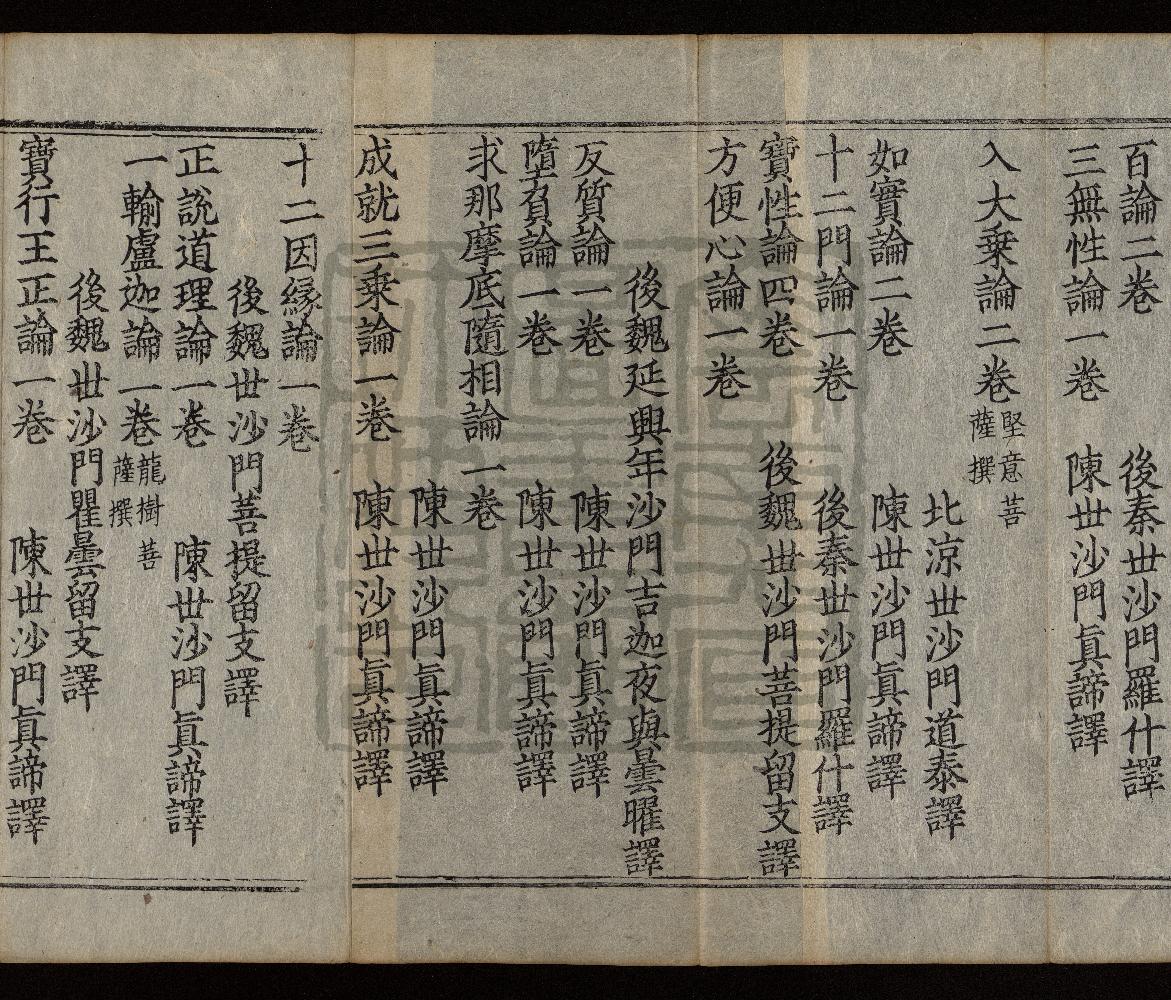 百論二卷
後秦世沙門羅什譯
三無性論一卷
陳世沙門眞諦譯
入大乗論二卷 堅意菩薩撰
北涼世沙門道泰譯
如實論二卷
陳世沙門眞諦譯
十二門論一卷
後秦世沙門羅什譯
寶性論四卷
後魏世沙門菩提留支譯
方便心論一卷
後魏延興年沙門吉迦夜與曇曜譯
反質論一卷
陳世沙門眞諦譯
墮負論一卷
陳世沙門眞諦譯
求那摩底隨相論一卷
陳世沙門眞諦譯
成就三乗論一卷
陳世沙門眞諦譯
十二因縁論一卷
後魏世沙門菩提留支譯
正說道理論一卷
陳世沙門眞諦譯
一輸盧迦論一卷 龍樹菩薩撰
後魏世沙門瞿曇留支譯
寶行王正論一卷
陳世沙門眞諦譯